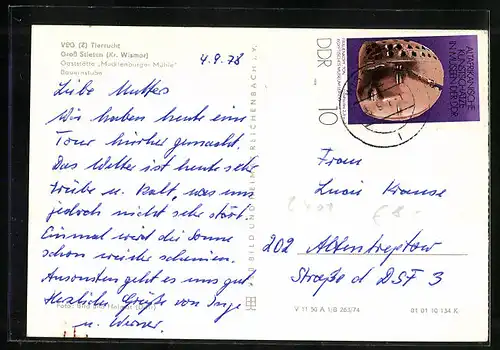 VEG (Z) Tierzucht
Groß Stieten (Kr. Wismar)
Gaststätte „Mecklenburger Mühle"
Bauernstube
4.9.78
Liebe Mutters
Wir haben heute eine
Tour hierher gemacht.
Das Wetter ist heute sehr
trübe u. kalt, was uns
jedoch nicht sehr stört.
Einmal wird die Sonne
schon wieder scheinen.
Ansonsten geht es uns gut.
Herzliche Grüße von Inge
u. Werner.
BILD UND HEIMAT REICHENBACH I. V.
ALTAFRIKANISCHE
KUNSTSCHÄTZE
IN MUSEEN DER DDR
DDR
10
Frau
Lucie Krause
202 Altentreptow
Straße d DSF 3
V 11 50 A 1/B 263/74
01 01 10 134 K